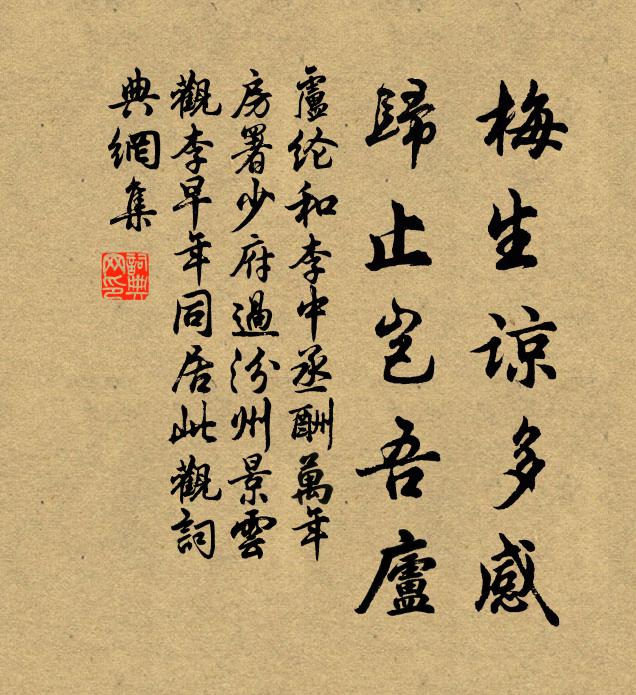 梅生谅多感
歸止岂吾廬
盧纶和李中丞酬萬年
房署少府過汾州景雲
觀李早年同居此觀詞
典網集
詞典
网印